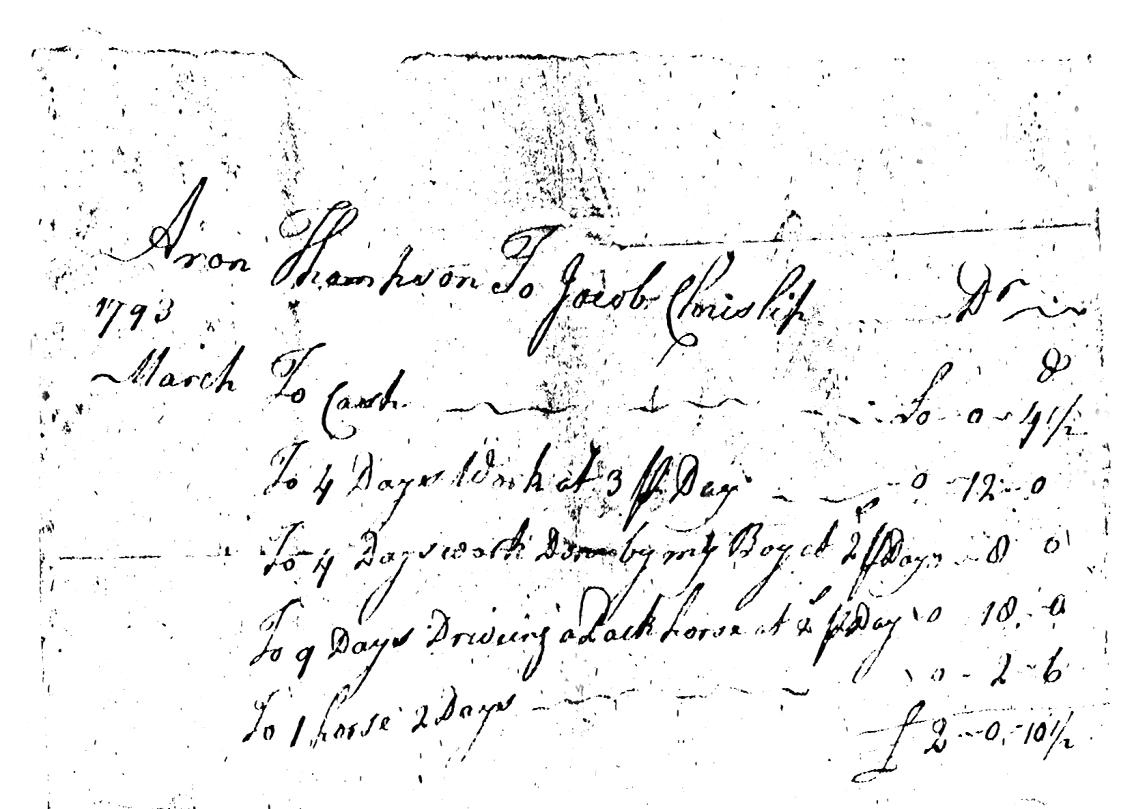 Aron Thampson To Jacob Chrislip Dr
1793
March To Cash £0 - 0 - 4 1/2 d
To 4 Days Work at 3/ ℔ Day 0 - 12 - 0
To 4 Days work Don by my Boy at 2/ ℔ Day 8 0
To 9 Days Driveing a Packhorse at 2/ ℔ Day 0 18 - 0
To 1 horse 2 Days 0 - 2 - 6
£ 2 - 0 - 10 1/2